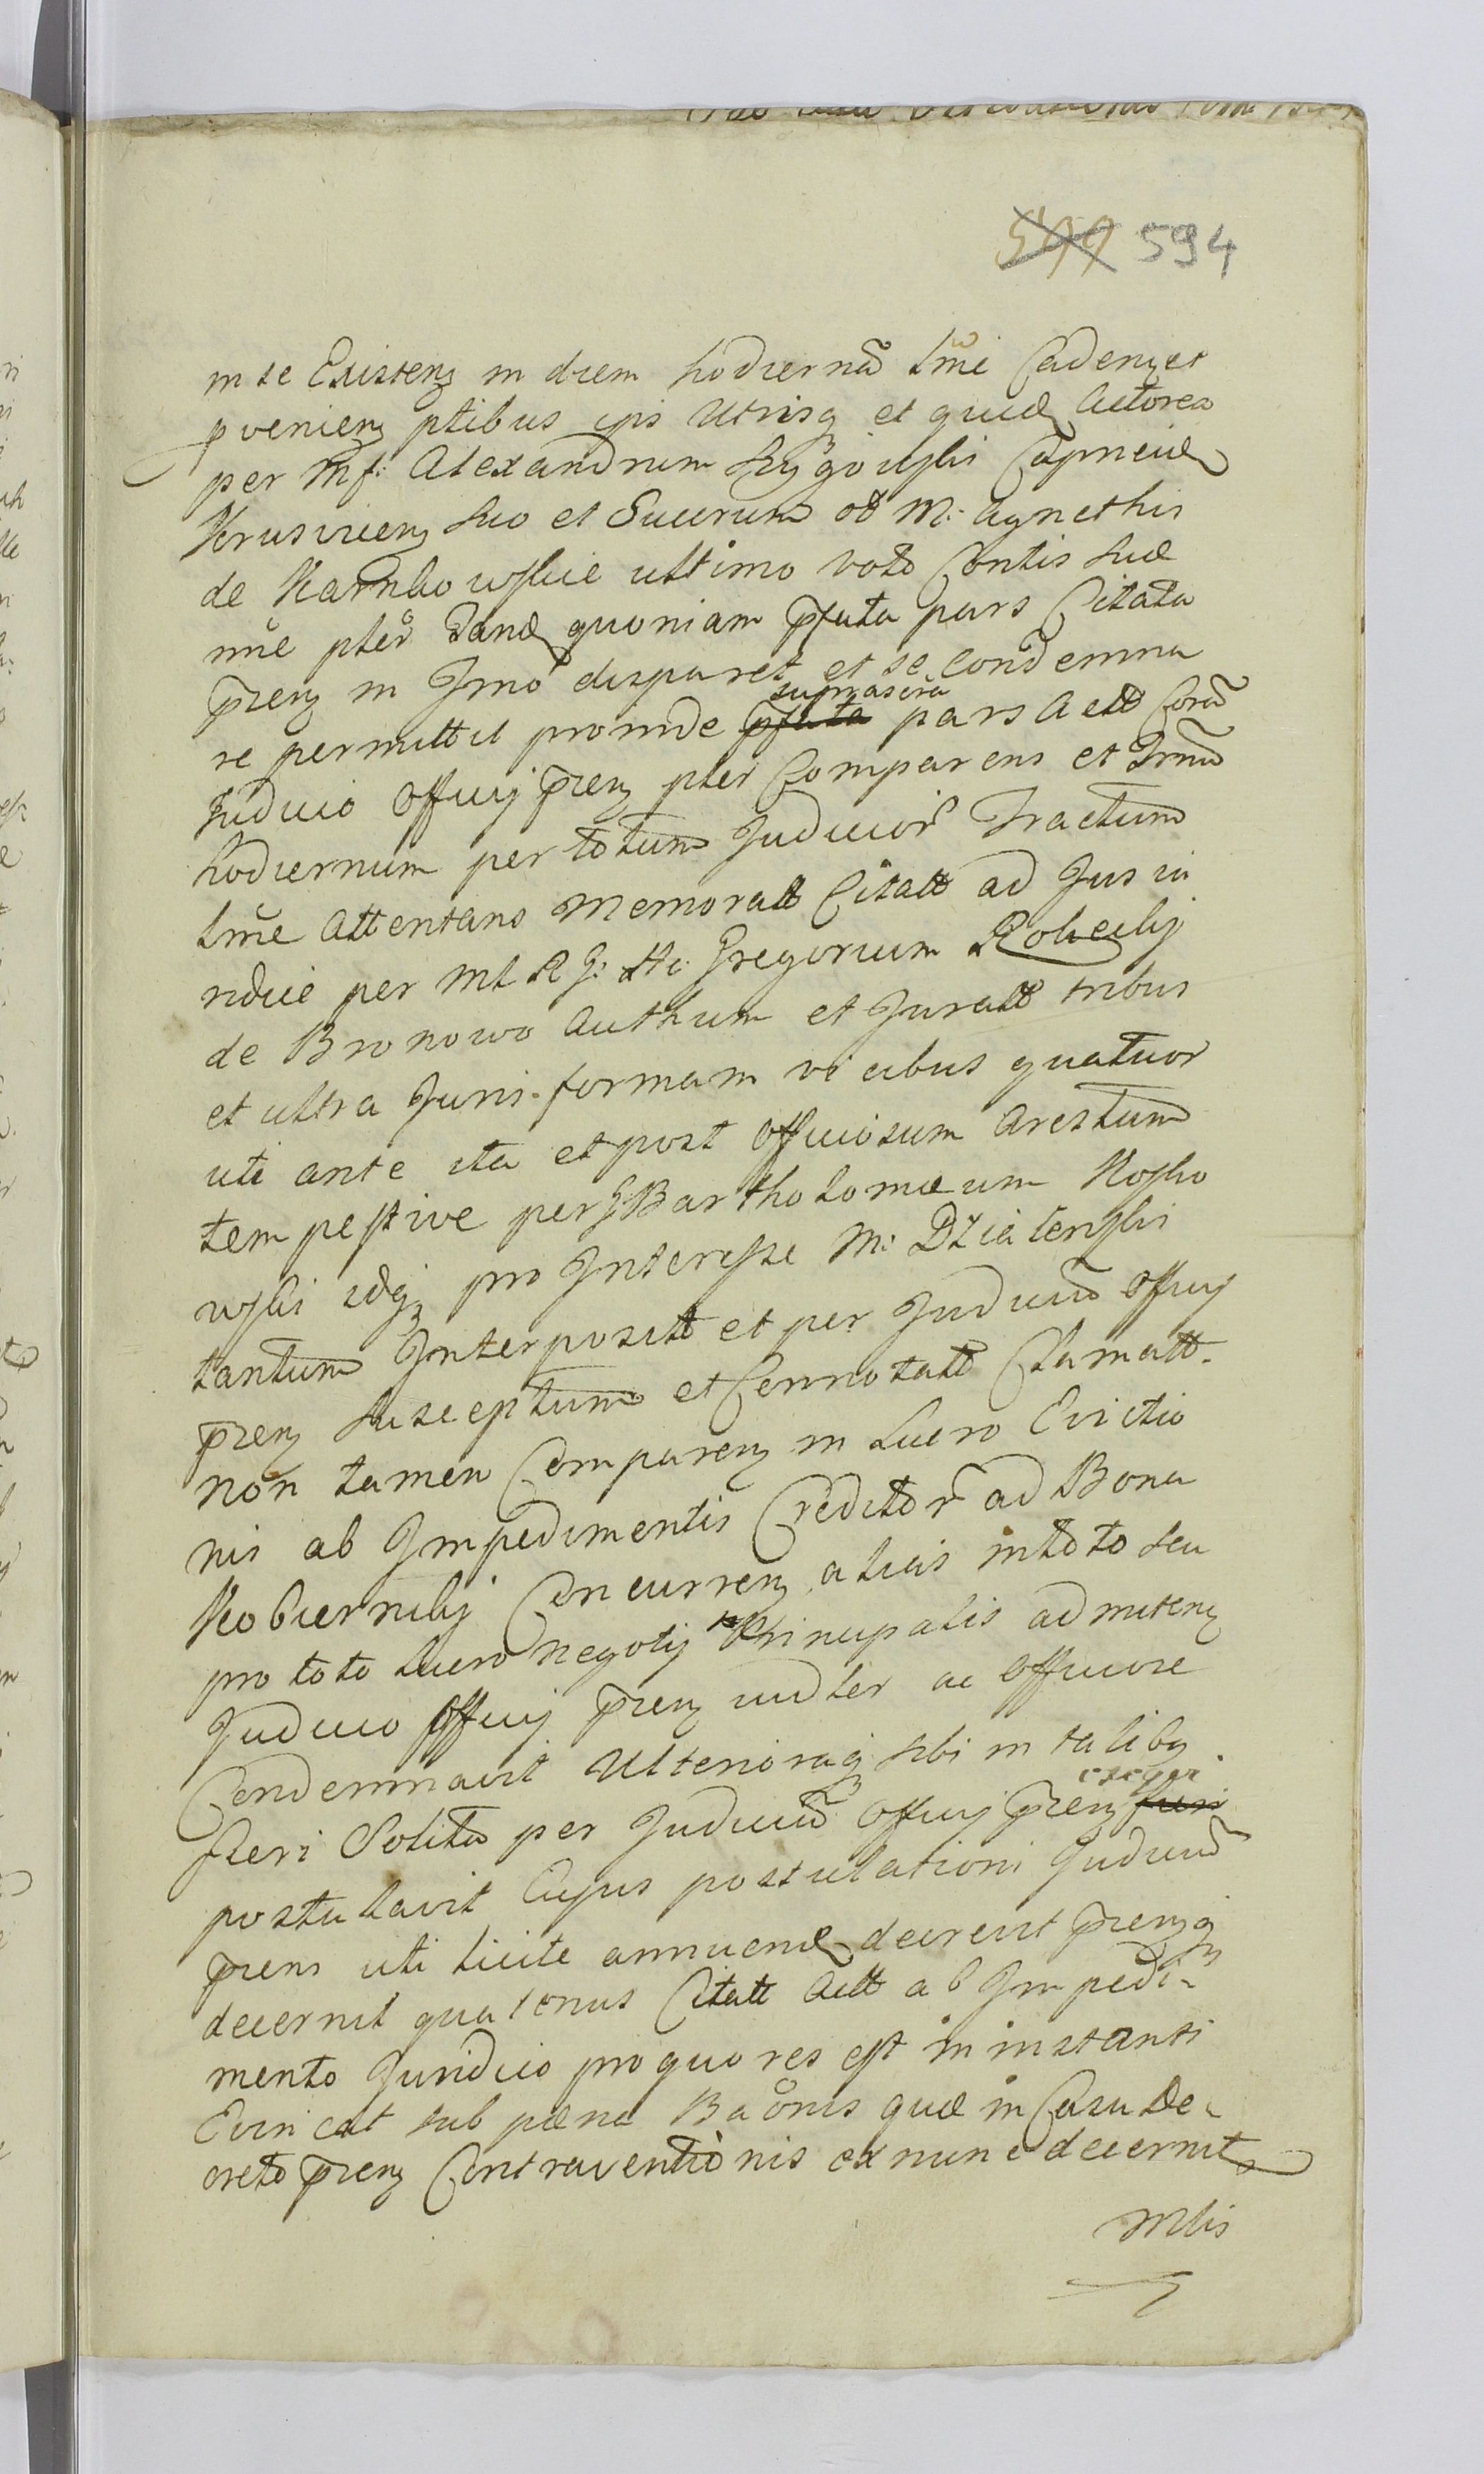 594
in se Existenȝ in diem hodiernã lm̃e Cadenȝ et
pvenienȝ ptibus ipis Utrisq et quid Actorea
per Mf: Alexandrum Ługowski Capneũ
Krusvicenȝ suo et Sucerum od M: Agnethis
de Karnkowskie ultimo voto Contis suæ
nõe ptẽr Danđ quoniam p̃fata pars Citata
p̃renȝ in Jmo disparet et se condemna
re permittit proinde suprascrã pars Actt Corã
Judicio Officij p̃renȝ ptẽr Comparens et Trmũ
hodiernum per totum Judicior Tractum
lm̃e Attentans Memoratt Citatt ad Jus iu
ridice per Ml R G: Gregorium Roheckij
de Bronowo Authum et Juratt tribus
et ultra Juris formam vicibus quatuor
uti ante ita et post Officiosum Arestum
tempestive per G Bartholomæum Kosko
wski idqȝ pro Interesse M: Działenski
tantum Interpositt et per Judiciũ Officij
p̃renȝ Susceptum et Connotatt Clamatt.
non tamen Comparenȝ in Lucro Evictio
nis ab Impedimentis Creditor ad Bona
Kobierniki Concurrenȝ alias in toto seu
pro toto lucro negotij Principalis admittenȝ
Judicio Officij p̃renȝ iudler ac Officiose
Condemnavit Ulterioraq sibi in talibȝ
fieri Solita per Judiciũ Officij p̃renȝ exequi
postulavit Cujus postulationi Judiciũ
p̃rens uti licite annuenđ decrevit p̃renȝq
decernit quatenus Citatt Actt ab Impedi-
mento Juridico pro quo res est in instanti
Evincat sub pæna Baõnis quæ in Casu De-
creto p̃renȝ Contraventionis ex nunc decernit
Mlis